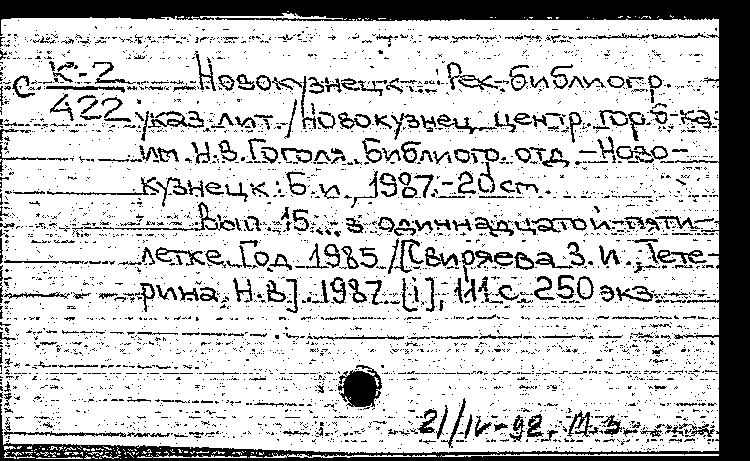 с К-2 Новокузнецк...: Рек. библиогр.
422 указ. лит. / Новокузнец. центр. гор. б-ка
им. Н.В. Гоголя. Библиогр. отд. - Ново-
кузнецк: Б.и., 1987. - 20 cm.
Вып. 15... в одиннадцатой пяти-
летке. Год 1985 / [Свиряева З.И., Тете-
рина Н.В]. 1987. [i], 111 с. 250 экз.
21/IV-92.